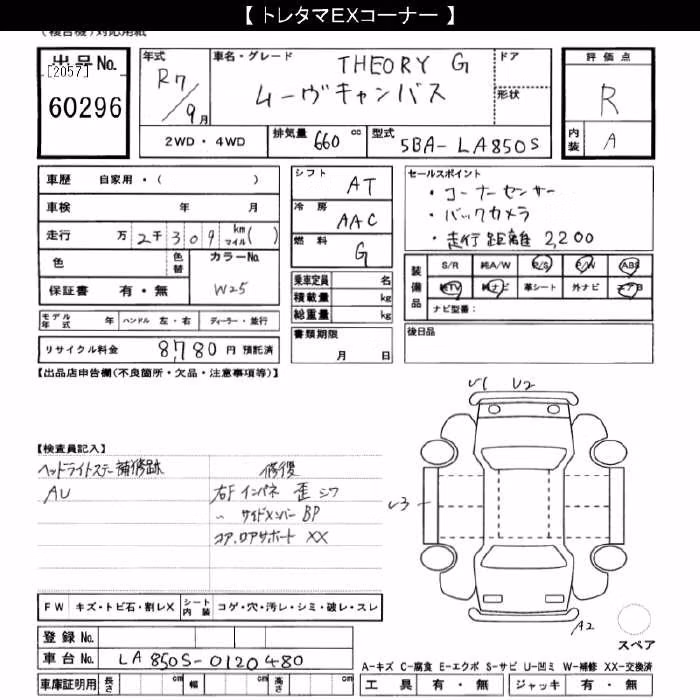 【 トレタマEXコーナー 】
(複合機)対応用紙
出品No.
[2057]
60296
年式
R7/9月
車名・グレード
THEORY G
ムーヴキャンバス
ドア
形状
評価点
R
内装
A
2WD・4WD
排気量 660 cc
型式 5BA-LA850S
車歴 自家用・( )
車検 年 月
走行 万 2千309 km マイル( )
色 色替 カラーNo. W25
保証書 有・無
シフト AT
冷房 AAC
燃料 G
乗車定員 名
積載量 kg
総重量 kg
書類期限 月 日
セールスポイント
・コーナーセンサー
・バックカメラ
・走行距離 2,200
装備品
S/R 純A/W P/S P/W ABS
純TV 純ナビ 革シート 外ナビ エアB
ナビ型番:
後日品
モデル年式 年 ハンドル 左・右 ディーラー・並行
リサイクル料金 8,780 円 預託済
【出品店申告欄(不良箇所・欠品・注意事項等)】
【検査員記入】
ヘッドライトステー補修跡
AU
修復
右Fインパネ 歪 シワ
〃 サイドメンバー BP
コア、ロアサポート XX
U1 U2
U3
A2
スペア
FW キズ・トビ石・割レX シート内装 コゲ・穴・汚レ・シミ・破レ・スレ
登録 No.
車台 No. LA850S-0120480
車庫証明用 長さ cm 幅 cm 高さ cm
A-キズ C-腐食 E-エクボ S-サビ U-凹ミ W-補修 XX-交換済
工具 有・無 ジャッキ 有・無